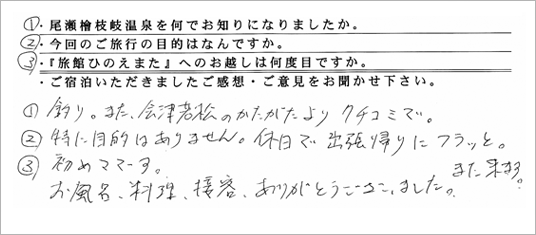 ①・尾瀬檜枝岐温泉を何でお知りになりましたか。
②・今回のご旅行の目的はなんですか。
③・『旅館ひのえまた』へのお越しは何度目ですか。
・ご宿泊いただきましたご感想・ご意見をお聞かせ下さい。
① 釣り。また、会津若松のかたがたより クチコミで。
② 特に目的はありません。休日で出張帰りにフラッと。
③ 初めてでーす。
また来ます。
お風呂、料理、接客、ありがとうございました。